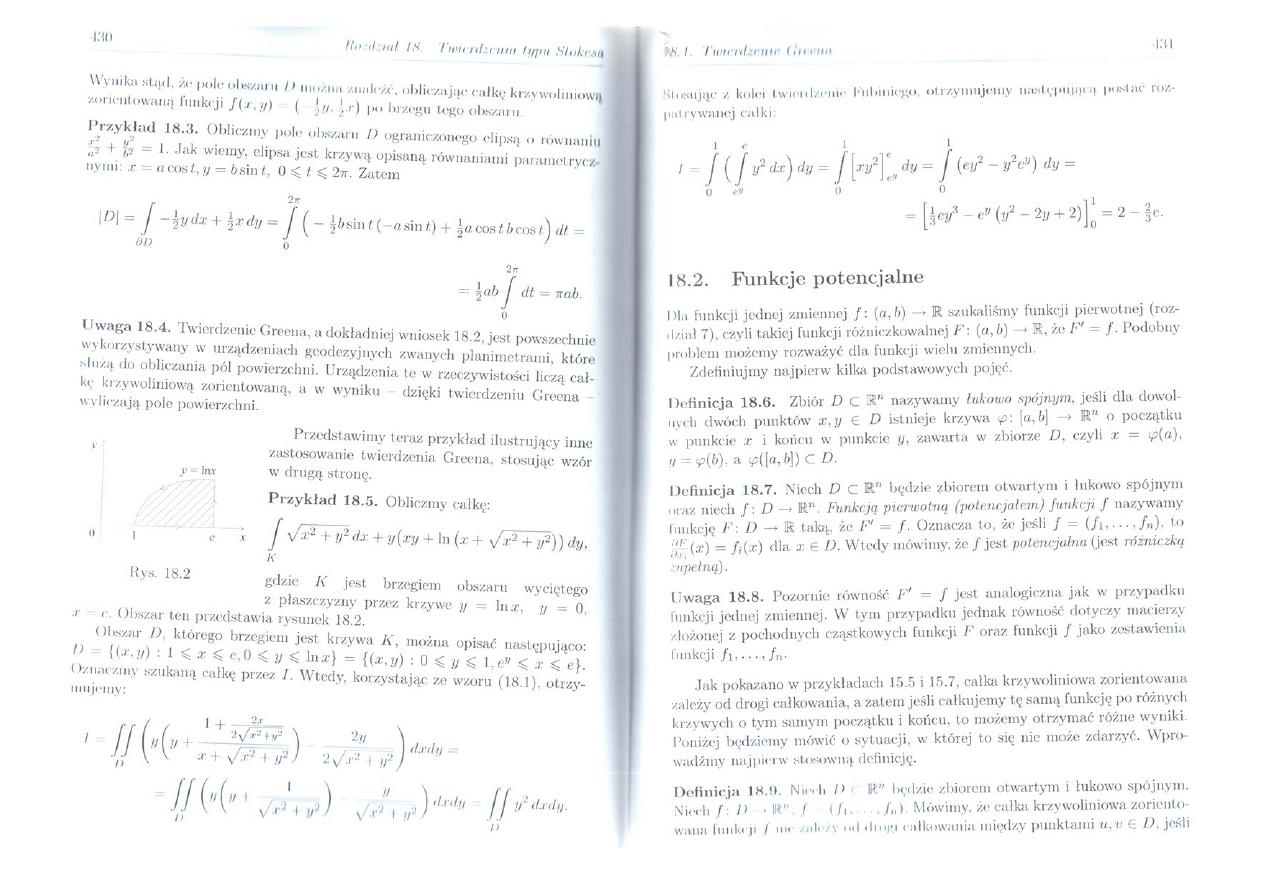 430
Rozdział 18. Twierdzenia typu Stokesa
Wynika stąd, że pole obszaru D można znaleźć, obliczając całkę krzywoliniową
zorientowaną funkcji f(x, y) = (−½y, ½x) po brzegu tego obszaru.
Przykład 18.3. Obliczmy pole obszaru D ograniczonego elipsą o równaniu
x²/a² + y²/b² = 1. Jak wiemy, elipsa jest krzywą opisaną równaniami parametrycz-
nymi: x = a cos t, y = b sin t, 0 ⩽ t ⩽ 2π. Zatem
|D| = ∫_{∂D} −½y dx + ½x dy = ∫_0^{2π} (−½b sin t (−a sin t) + ½a cos t b cos t) dt =
= ½ab ∫_0^{2π} dt = πab.
Uwaga 18.4. Twierdzenie Greena, a dokładniej wniosek 18.2, jest powszechnie
wykorzystywany w urządzeniach geodezyjnych zwanych planimetrami, które
służą do obliczania pól powierzchni. Urządzenia te w rzeczywistości liczą cał-
kę krzywoliniową zorientowaną, a w wyniku – dzięki twierdzeniu Greena –
wyliczają pole powierzchni.
y
y = lnx
0 1 e x
Rys. 18.2
Przedstawimy teraz przykład ilustrujący inne
zastosowanie twierdzenia Greena, stosując wzór
w drugą stronę.
Przykład 18.5. Obliczmy całkę:
∫_K √(x² + y²) dx + y(xy + ln (x + √(x² + y²))) dy,
gdzie K jest brzegiem obszaru wyciętego
z płaszczyzny przez krzywe y = ln x, y = 0,
x = e. Obszar ten przedstawia rysunek 18.2.
Obszar D, którego brzegiem jest krzywa K, można opisać następująco:
D = {(x, y) : 1 ⩽ x ⩽ e, 0 ⩽ y ⩽ ln x} = {(x, y) : 0 ⩽ y ⩽ 1, e^y ⩽ x ⩽ e}.
Oznaczmy szukaną całkę przez I. Wtedy, korzystając ze wzoru (18.1), otrzy-
mujemy:
I = ∬_D (y(y + (1 + 2x/(2√(x² + y²)))/(x + √(x² + y²))) − 2y/(2√(x² + y²))) dxdy =
= ∬_D (y(y + 1/√(x² + y²)) − y/√(x² + y²)) dxdy = ∬_D y² dxdy.
18.1. Twierdzenie Greena
431
Stosując z kolei twierdzenie Fubiniego, otrzymujemy następującą postać roz-
patrywanej całki:
I = ∫_0^1 (∫_{e^y}^e y² dx) dy = ∫_0^1 [xy²]_{e^y}^e dy = ∫_0^1 (ey² − y²e^y) dy =
= [⅓ey³ − e^y (y² − 2y + 2)]_0^1 = 2 − ⅔e.
18.2. Funkcje potencjalne
Dla funkcji jednej zmiennej f : (a, b) → ℝ szukaliśmy funkcji pierwotnej (roz-
dział 7), czyli takiej funkcji różniczkowalnej F : (a, b) → ℝ, że F′ = f. Podobny
problem możemy rozważyć dla funkcji wielu zmiennych.
Zdefiniujmy najpierw kilka podstawowych pojęć.
Definicja 18.6. Zbiór D ⊂ ℝⁿ nazywamy łukowo spójnym, jeśli dla dowol-
nych dwóch punktów x, y ∈ D istnieje krzywa φ: [a, b] → ℝⁿ o początku
w punkcie x i końcu w punkcie y, zawarta w zbiorze D, czyli x = φ(a),
y = φ(b), a φ([a, b]) ⊂ D.
Definicja 18.7. Niech D ⊂ ℝⁿ będzie zbiorem otwartym i łukowo spójnym
oraz niech f : D → ℝⁿ. Funkcją pierwotną (potencjałem) funkcji f nazywamy
funkcję F : D → ℝ taką, że F′ = f. Oznacza to, że jeśli f = (f₁, . . . , fₙ), to
∂F/∂xᵢ (x) = fᵢ(x) dla x ∈ D. Wtedy mówimy, że f jest potencjalna (jest różniczką
zupełną).
Uwaga 18.8. Pozornie równość F′ = f jest analogiczna jak w przypadku
funkcji jednej zmiennej. W tym przypadku jednak równość dotyczy macierzy
złożonej z pochodnych cząstkowych funkcji F oraz funkcji f jako zestawienia
funkcji f₁, . . . , fₙ.
Jak pokazano w przykładach 15.5 i 15.7, całka krzywoliniowa zorientowana
zależy od drogi całkowania, a zatem jeśli całkujemy tę samą funkcję po różnych
krzywych o tym samym początku i końcu, to możemy otrzymać różne wyniki.
Poniżej będziemy mówić o sytuacji, w której to się nie może zdarzyć. Wpro-
wadźmy najpierw stosowną definicję.
Definicja 18.9. Niech D ⊂ ℝⁿ będzie zbiorem otwartym i łukowo spójnym.
Niech f : D → ℝⁿ, f = (f₁, . . . , fₙ). Mówimy, że całka krzywoliniowa zoriento-
wana funkcji f nie zależy od drogi całkowania między punktami u, v ∈ D, jeśli